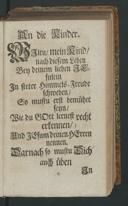 An die Kinder.
Wiltu, mein Kind/
nach diesem Leben
Bey deinem lieben JE-
sulein
In steter Himmels-Freude
schweben/
So mustu erst bemühet
seyn/
Wie du GOtt lernest recht
erkennen/
Und JEsum deinen HErren
nennen.
Darnach so mustu Dich
auch üben
In